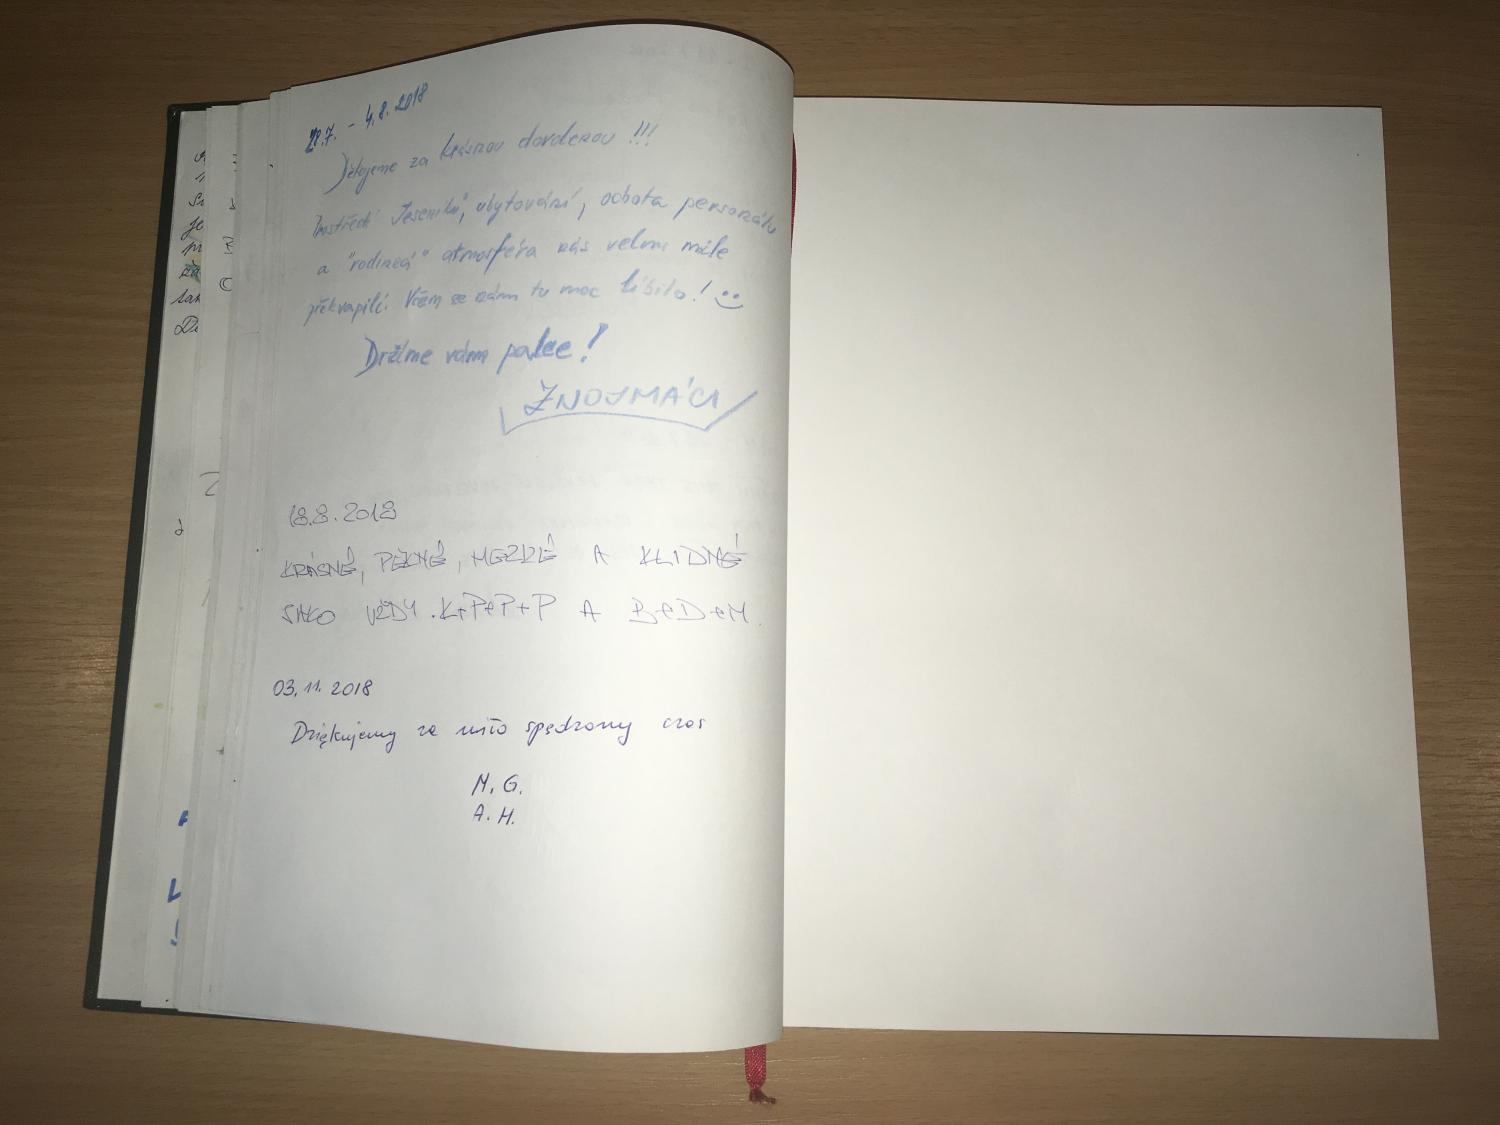 28.7. - 4.8.2018
Děkujeme za krásnou dovolenou !!!
Prostředí Jeseníků, ubytování, ochota personálu
a "rodinná" atmosféra nás velmi mile
překvapili. Všem se nám tu moc líbilo! :)
Držíme vám palce!
ZNOJMÁCI
18.8.2018
KRÁSNÉ, PĚKNÉ, HEZKÉ A KLIDNÉ
JAKO VŽDY. K+P+P+P A B+D+M.
03.11.2018
Dziękujemy za miło spędzony czas
M.G.
A.H.